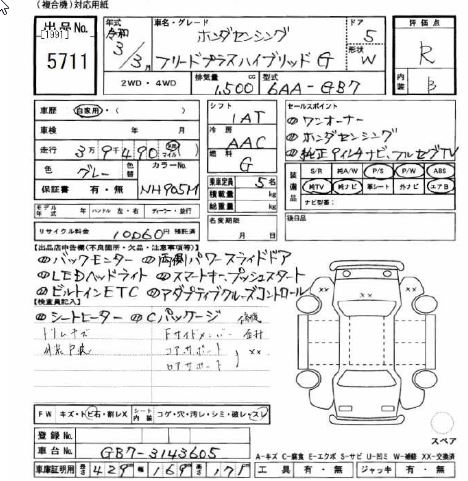 (複合機)対応用紙
出品No.
[1991]
5711
年式
令和
3/3月
車名・グレード
ホンダセンシング
フリードプラスハイブリッド G
ドア
5
形状
W
評価点
R
内装
B
2WD・4WD
排気量
1,500 cc
型式
6AA-GB7
車歴 自家用・( )
車検 年 月
走行 3万9千490 マイル
色 グレー
色替
カラーNo.
NH905M
保証書 有・無
シフト
IAT
冷房
AAC
燃料
G
乗車定員 5名
積載量 kg
総重量 kg
名変期限
月 日
セールスポイント
①ワンオーナー
②ホンダセンシング
③純正9インチナビ、フルセグTV
装備品
S/R 純A/W P/S P/W ABS
純TV 純ナビ 革シート 外ナビ エアB
ナビ型番:
後日品
モデル年式 年 ハンドル 左・右 ディーラー・並行
リサイクル料金 10060円 預託済
【出品店申告欄(不良箇所・欠品・注意事項等)】
④バックモニター ⑤両側パワースライドドア
⑥LEDヘッドライト ⑦スマートキープッシュスタート
⑧ビルトインETC ⑨アダプティブクルーズコントロール
【検査員記入】
⑩シートヒーター ⑪Cパッケージ 修復
Fサイドメンバー
コアサポート XX
ロアサポート
XX XX
FW キズ・トビ石・割レX
シート内装 コゲ・穴・汚レ・シミ・破レ・スレ
スペア
登録No.
車台No. GB7-3143605
A-キズ C-腐食 E-エクボ S-サビ U-凹ミ W-補修 XX-交換済
車庫証明用 長さ 429 幅 169 高さ 171
工具 有・無 ジャッキ 有・無